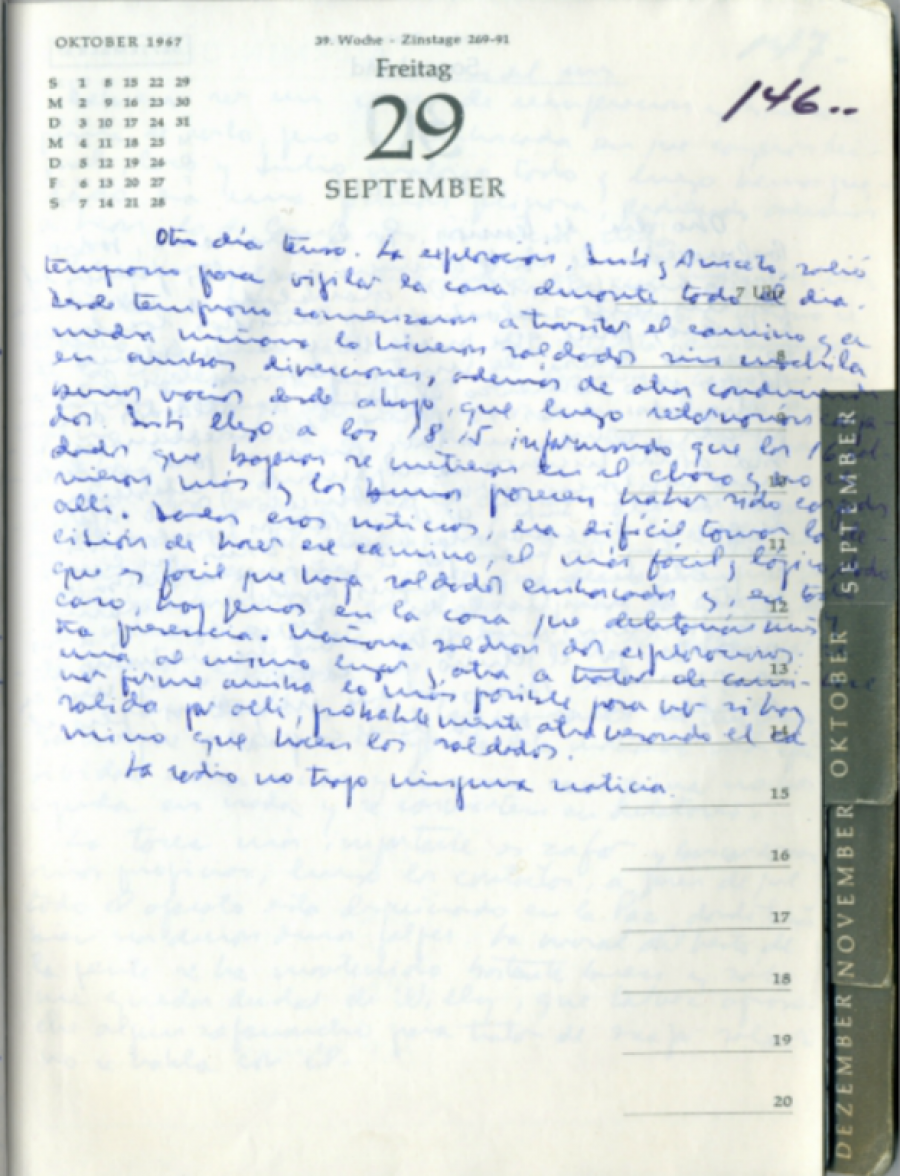 OKTOBER 1967
39. Woche - Zinstage 269-91
S 1 8 15 22 29
M 2 9 16 23 30
D 3 10 17 24 31
M 4 11 18 25
D 5 12 19 26
F 6 13 20 27
S 7 14 21 28
Freitag
29
SEPTEMBER
146..
Otro día tenso. La exploración, Inti y Aniceto, salió
temprano para vigilar la casa durante todo el día.
Desde temprano comenzaron a transitar el camino y a
media mañana lo hicieron soldados sin mochila
en ambas direcciones, además de otros
burros vacíos desde abajo que luego retornaron
dos. Inti llegó a las 18.15 informando que los 16
dados que bajaron se metieron en el chaco y no
vieron más y los burros parecen haber sido
allí. Dadas esas noticias, era difícil tomar la
cisión de hacer ese camino, el más fácil y lógico,
que es fácil que haya soldados emboscados y, en
caso, hay perros en la casa que delatarían
tra presencia. Mañana saldrán dos exploraciones:
una al mismo lugar y otra a tratar de
por firme arriba lo más posible para ver si hay
salida por allí, probablemente atravesando el
mino que hacen los soldados.
La radio no trajo ninguna noticia.
7 Uhr
8
9
10
11
12
13
14
15
16
17
18
19
20
SEPTEMBER
OKTOBER
NOVEMBER
DEZEMBER